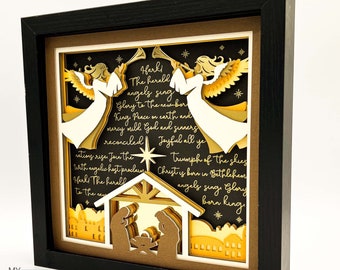 Hark!
The herald
angels sing
Glory to the newborn
King Peace on earth and
mercy mild God and sinners
reconciled Joyful all ye
nations rise Join the Triumph of the skies
With angelic host proclaim Christ is born in Bethlehem
Hark! The herald angels sing Glory
to the newborn king
MY